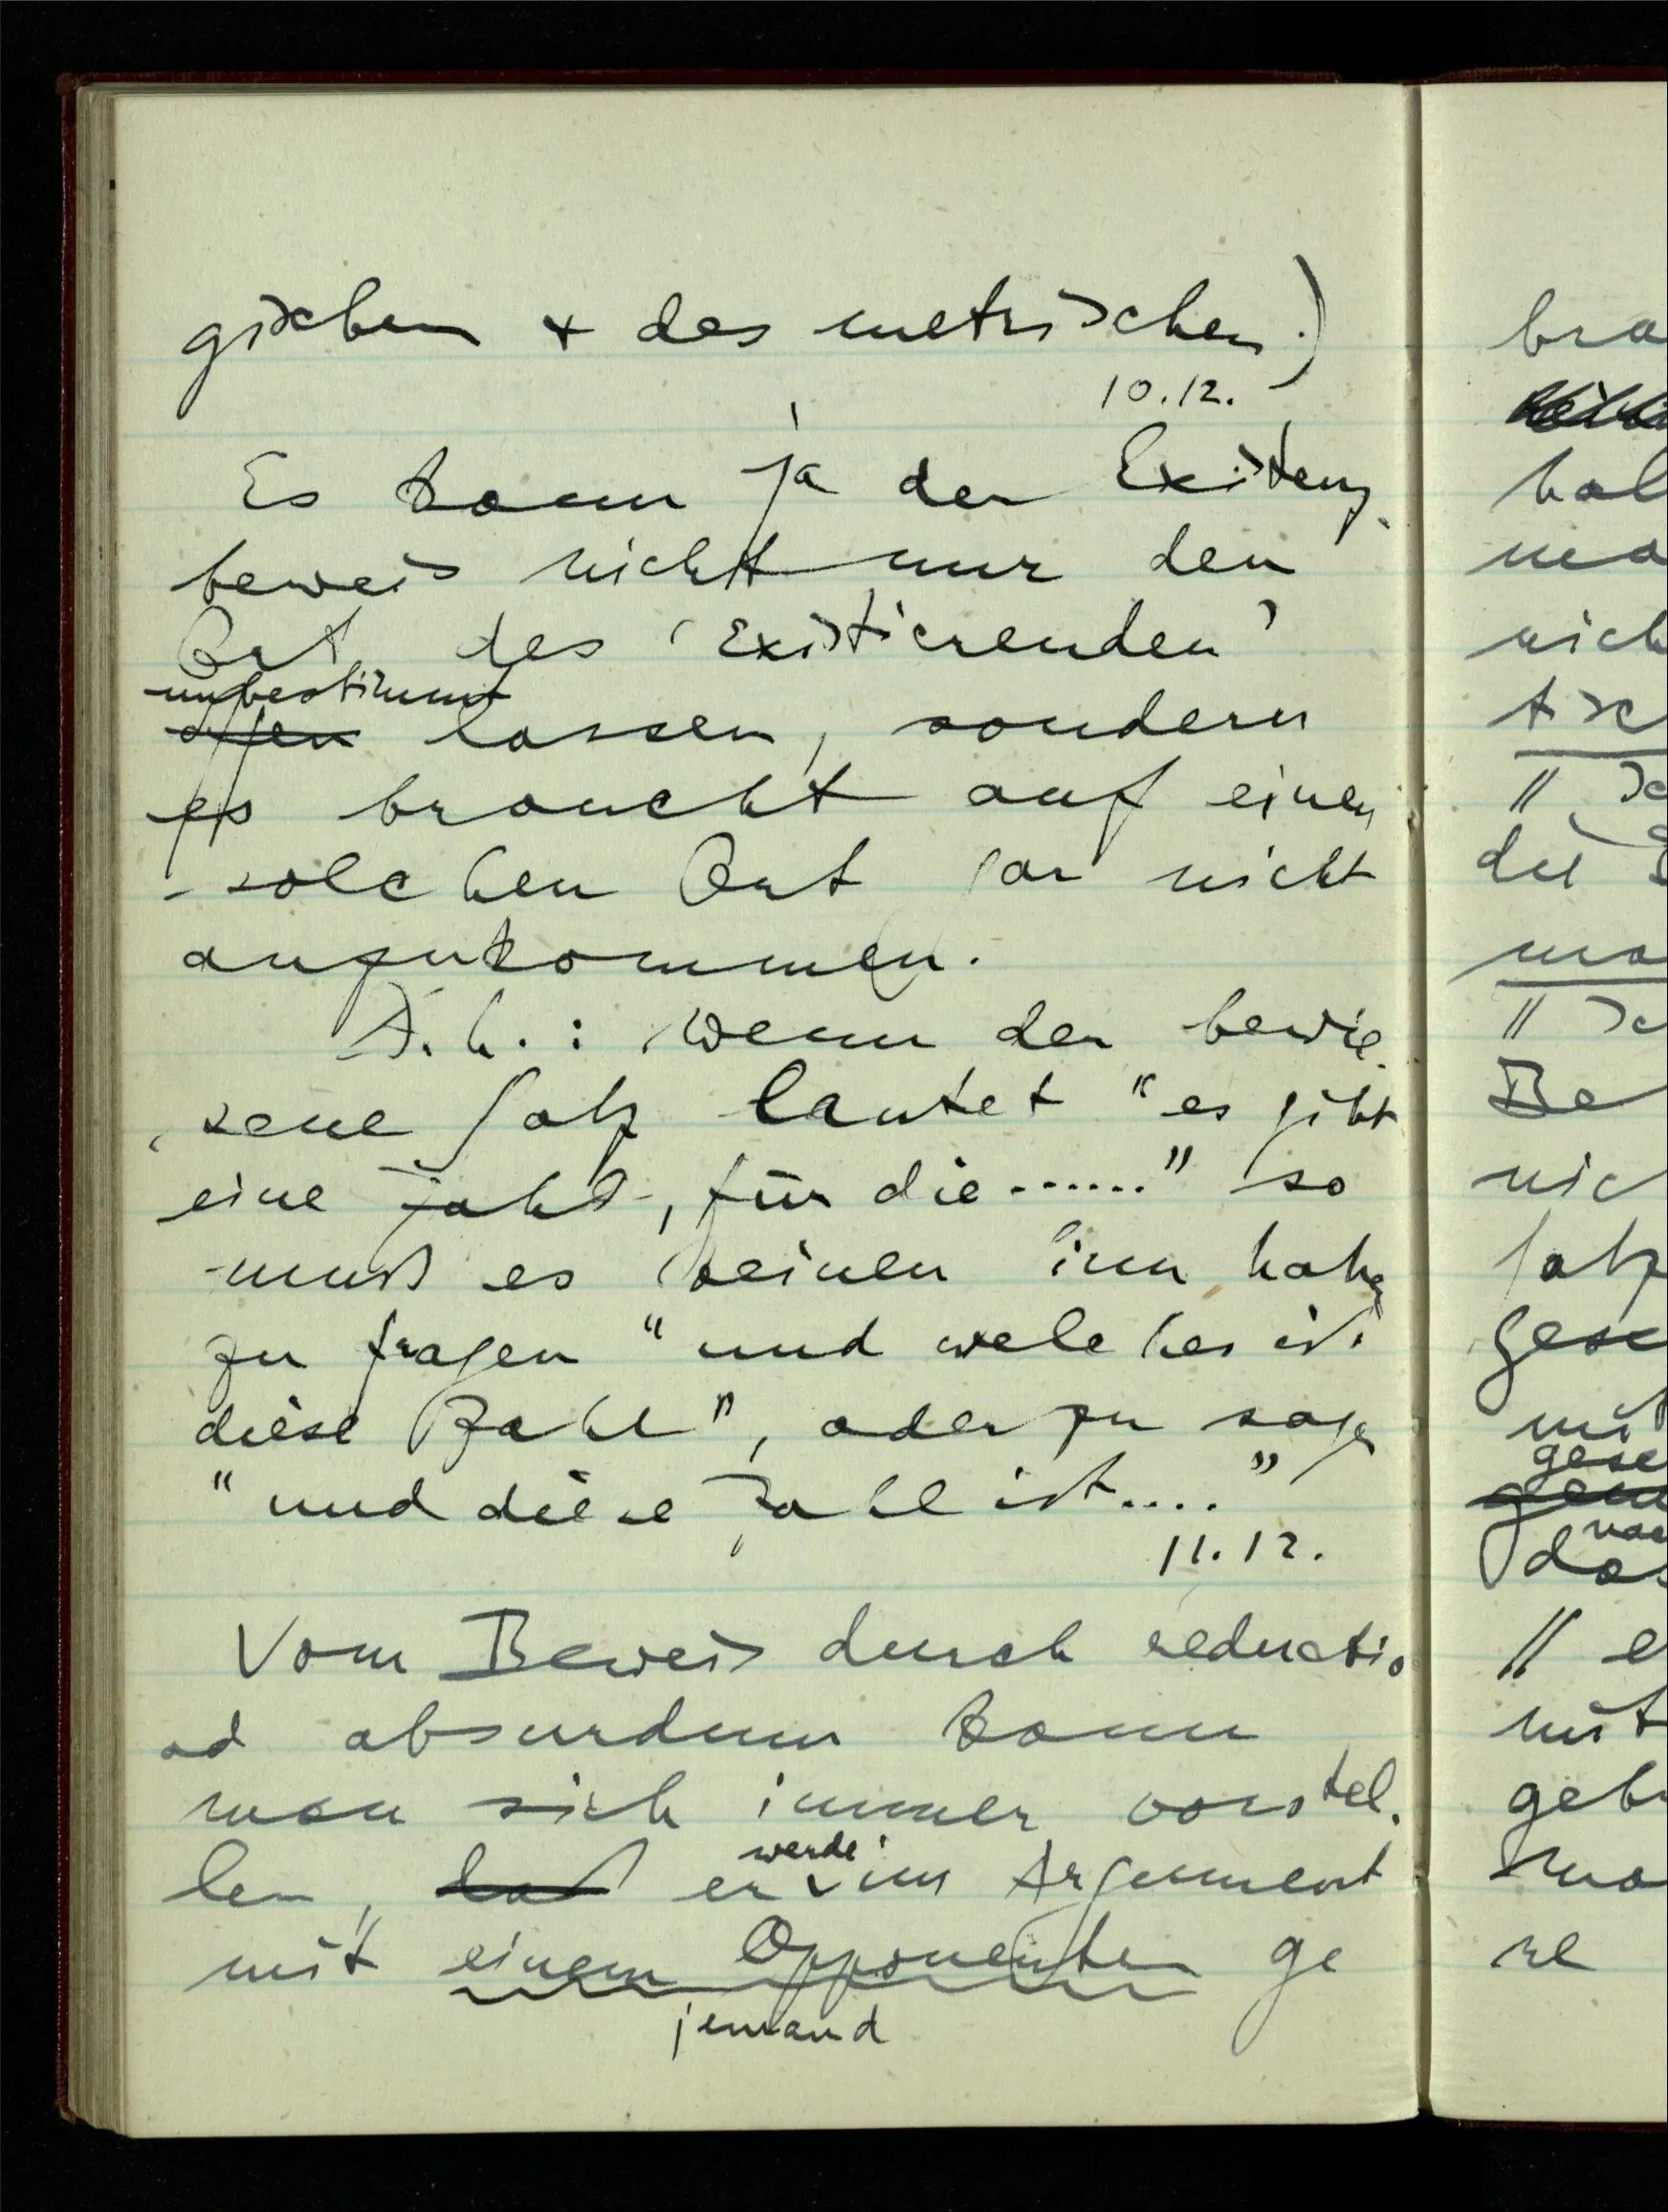 gischen & des metrischen.)
10.12.
Es kann ja der Existenz-
beweis nicht nur den
Ort des ‘Existierenden’
unbestimmt
offen lassen, sondern
es braucht auf einen
solchen Ort gar nicht
anzukommen.
D.h.: wenn der bewie-
sene Satz lautet “es gibt
eine Zahl, für die......” so
muß es keinen Sinn haben
zu fragen “und welches ist
diese Zahl”, oder zu sagen
“und diese Zahl ist....”
11.12.
Vom Beweis durch reductio
ad absurdum kann
man sich immer vorstel-
werde
len, daß er im Argument
mit einem Opponenten ge
jemand
bra
hal
ma
nich
tsc
die
ma
Be
nic
Satz
gesc
mit
das
mit
geb
ma
re